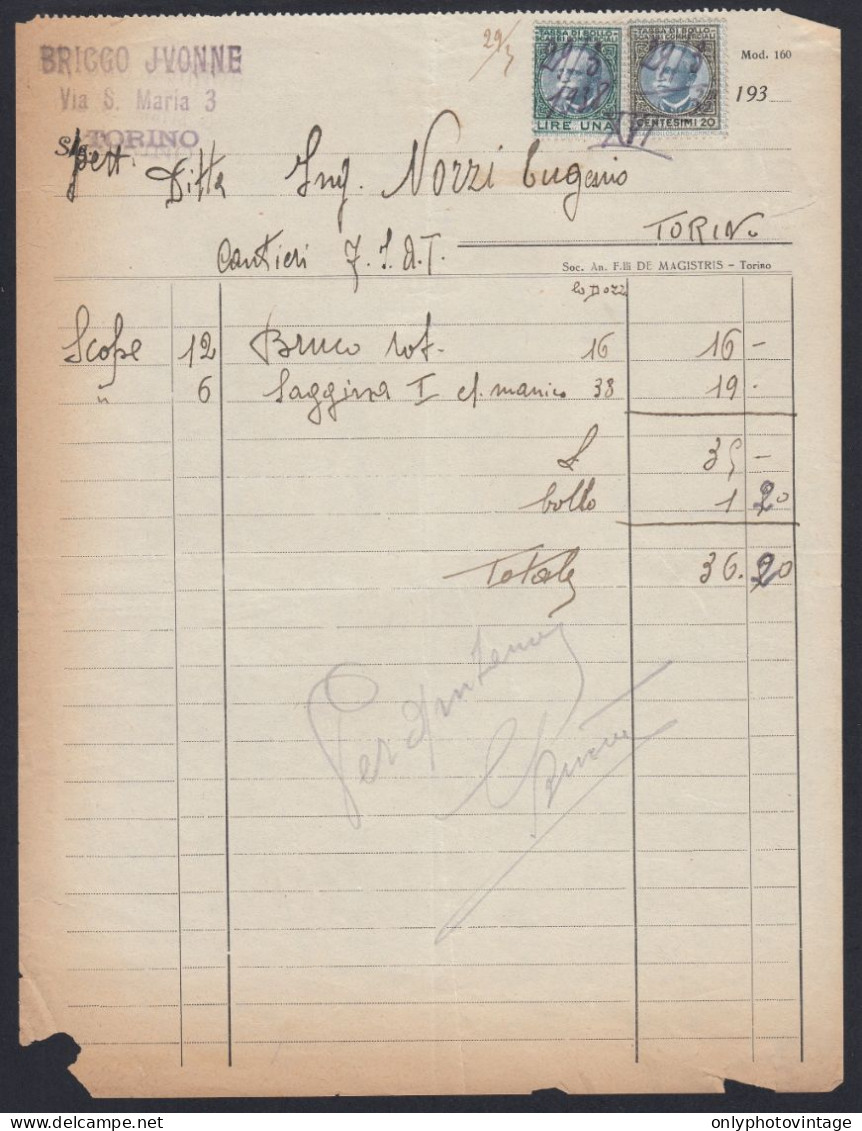 BRICCO JVONNE
Via S. Maria 3
TORINO
29/3
TASSA DI BOLLO
SCAMBI COMMERCIALI
LIRE UNA
TASSA DI BOLLO
SCAMBI COMMERCIALI
CENTESIMI 20
29 3
1938
29 3
38
XVI
Mod. 160
193
Spett. Ditta Ing. Nozzi Eugenio
TORINO
Cantieri F.I.A.T.
Soc. An. F.lli DE MAGISTRIS – Torino
la Dozz
Scope 12 Bruco rot. 16 16 -
" 6 Saggina I c/. manico 38 19 -
L 35 -
bollo 1 20
Totale 36. 20
onlyphotovintage